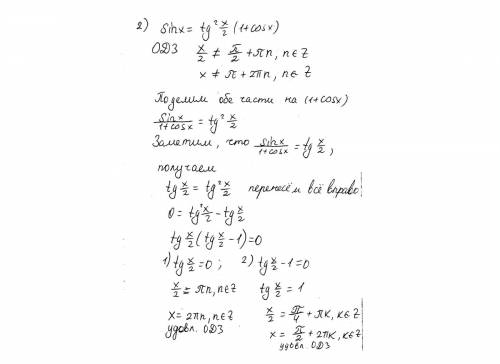 2) sinx = tg² x/2 (1+cosx)
ОДЗ x/2 ≠ π/2 + πn, n∈Z
x ≠ π + 2πn, n∈Z
Поделим обе части на (1+cosx)
sinx/(1+cosx) = tg² x/2
Заметим, что sinx/(1+cosx) = tg x/2,
получаем
tg x/2 = tg² x/2 перенесём всё вправо
0 = tg² x/2 - tg x/2
tg x/2 (tg x/2 - 1) = 0
1) tg x/2 = 0; 2) tg x/2 - 1 = 0
x/2 = πn, n∈Z tg x/2 = 1
x = 2πn, n∈Z x/2 = π/4 + πk, k∈Z
удовл. ОДЗ x = π/2 + 2πk, k∈Z
удовл. ОДЗ